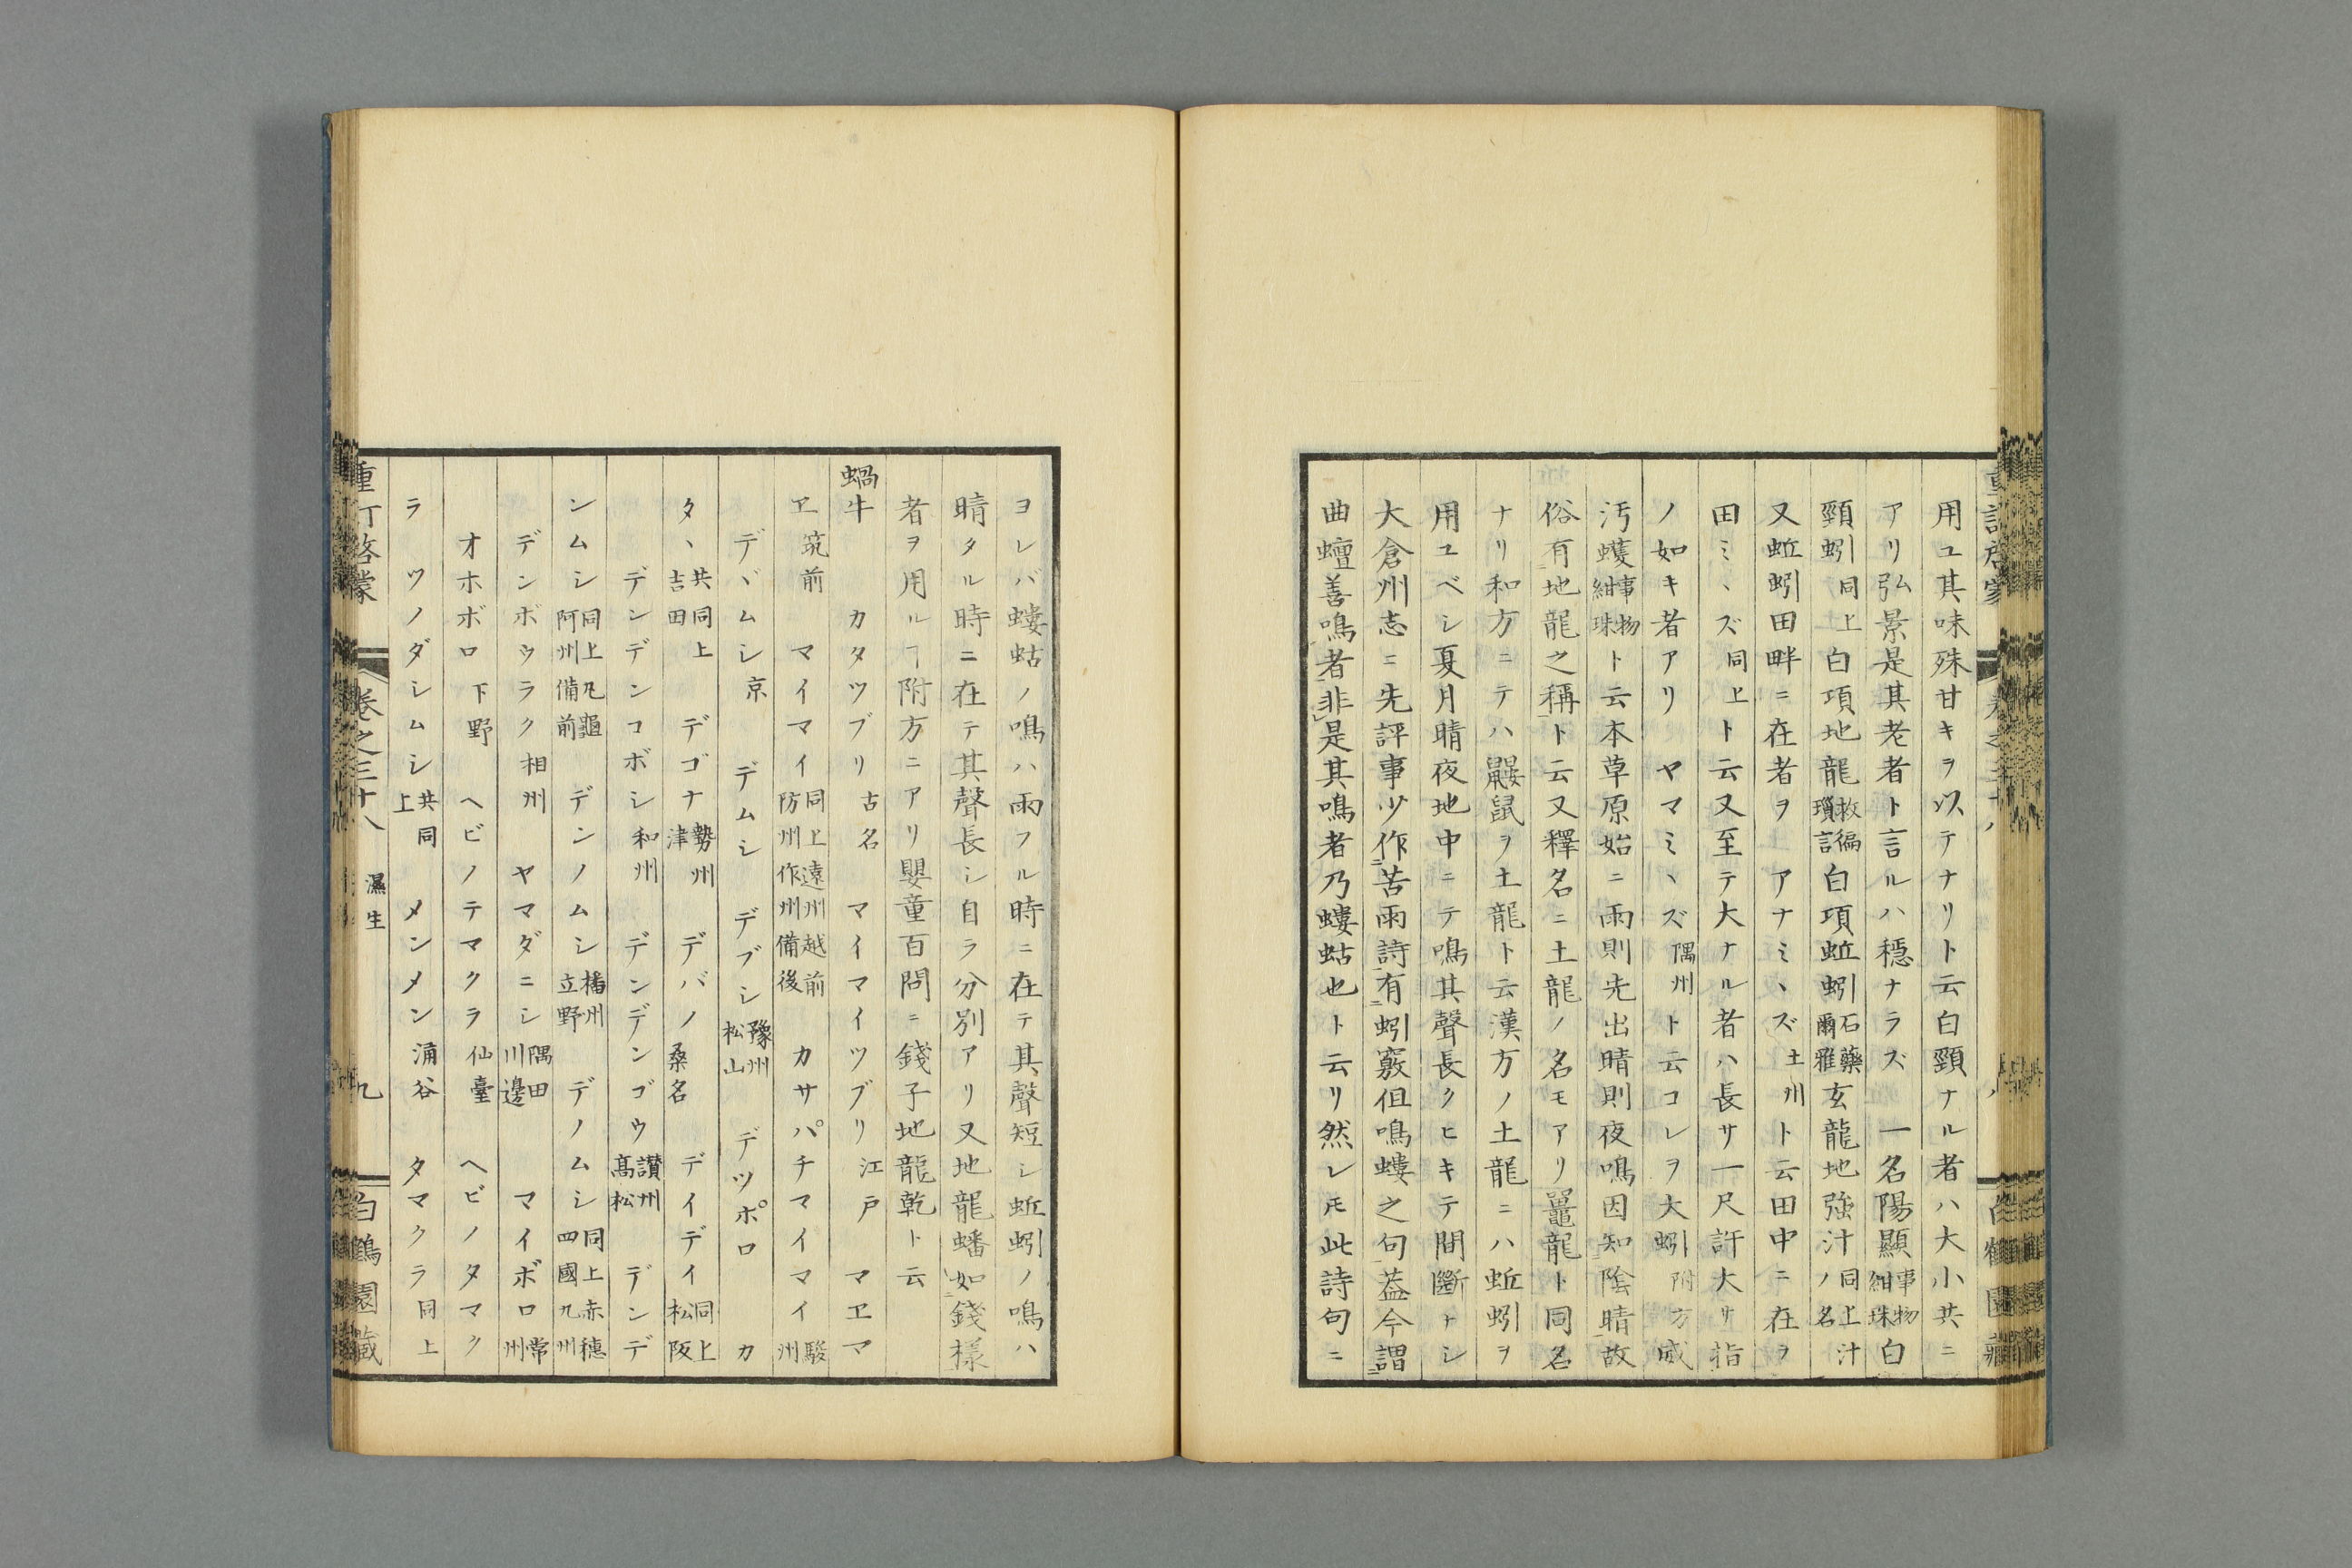 用ユ其味殊甘キヲ以テナリト云白頸ナル者ハ大小共ニ
アリ弘景是其老者ト言ルハ穏ナラズ 一名陽顯事物紺珠白
頸蚓同上白項地龍救徧瑣言白項蚯蚓石藥爾雅玄龍地強汁同上汁ノ名
又蚯蚓田畔ニ在者ヲ アナミヽズ土州ト云田中ニ在ヲ
田ミヽズ同上ト云又至テ大ナル者ハ長サ一尺許大サ指
ノ如キ者アリ ヤマミヽズ隅州ト云コレヲ大蚓附方
汚蠖事物紺珠ト云本草原始ニ雨則先出晴則夜鳴因知陰晴故
俗有地龍之稱ト云又釋名ニ土龍ノ名モアリ鼉龍ト同名
ナリ和方ニテハ鼹鼠ヲ土龍ト云漢方ノ土龍ニハ蚯蚓ヲ
用ユベシ夏月晴夜地中ニテ鳴其聲長クヒキテ間斷ナシ
大倉州志ニ先評事少作苦雨詩有蚓竅伹鳴螻之句葢今謂
曲蟺善鳴者非是其鳴者乃螻蛄也ト云リ然レ𪜈此詩句ニ
ヨレバ螻蛄ノ鳴ハ雨フル時ニ在テ其聲短シ蚯蚓ノ鳴ハ
晴タル時ニ在テ其聲長シ自ラ分別アリ又地龍蟠如錢樣
者ヲ用ルヿ附方ニアリ嬰童百問ニ錢子地龍乾ト云
蝸牛 カタツブリ古名 マイマイツブリ江戸 マヱマ
ヱ筑前 マイマイ同上遠州越前防州作州備後 カサパチマイマイ駿州
デヾムシ京 デムシ デブシ豫州松山 デツポロ カ
タヽ共同上吉田 デゴナ勢州津 デバノ桑名 デイデイ同上松阪
デンデンコボシ和州 デンデンゴウ讃州髙松 デンデ
ンムシ同上丸龜阿州備前 デンノムシ播州立野 デノムシ同上赤穗四國九州
デンボウラク相州 ヤマダニシ隅田川邊 マイボロ常州
オホボロ下野 ヘビノテマクラ仙臺 ヘビノタマク
ラ ツノダシムシ共同上 メンメン涌谷 タマクラ同上
重訂啓蒙 卷之三十八 濕生 九 白鶴園藏